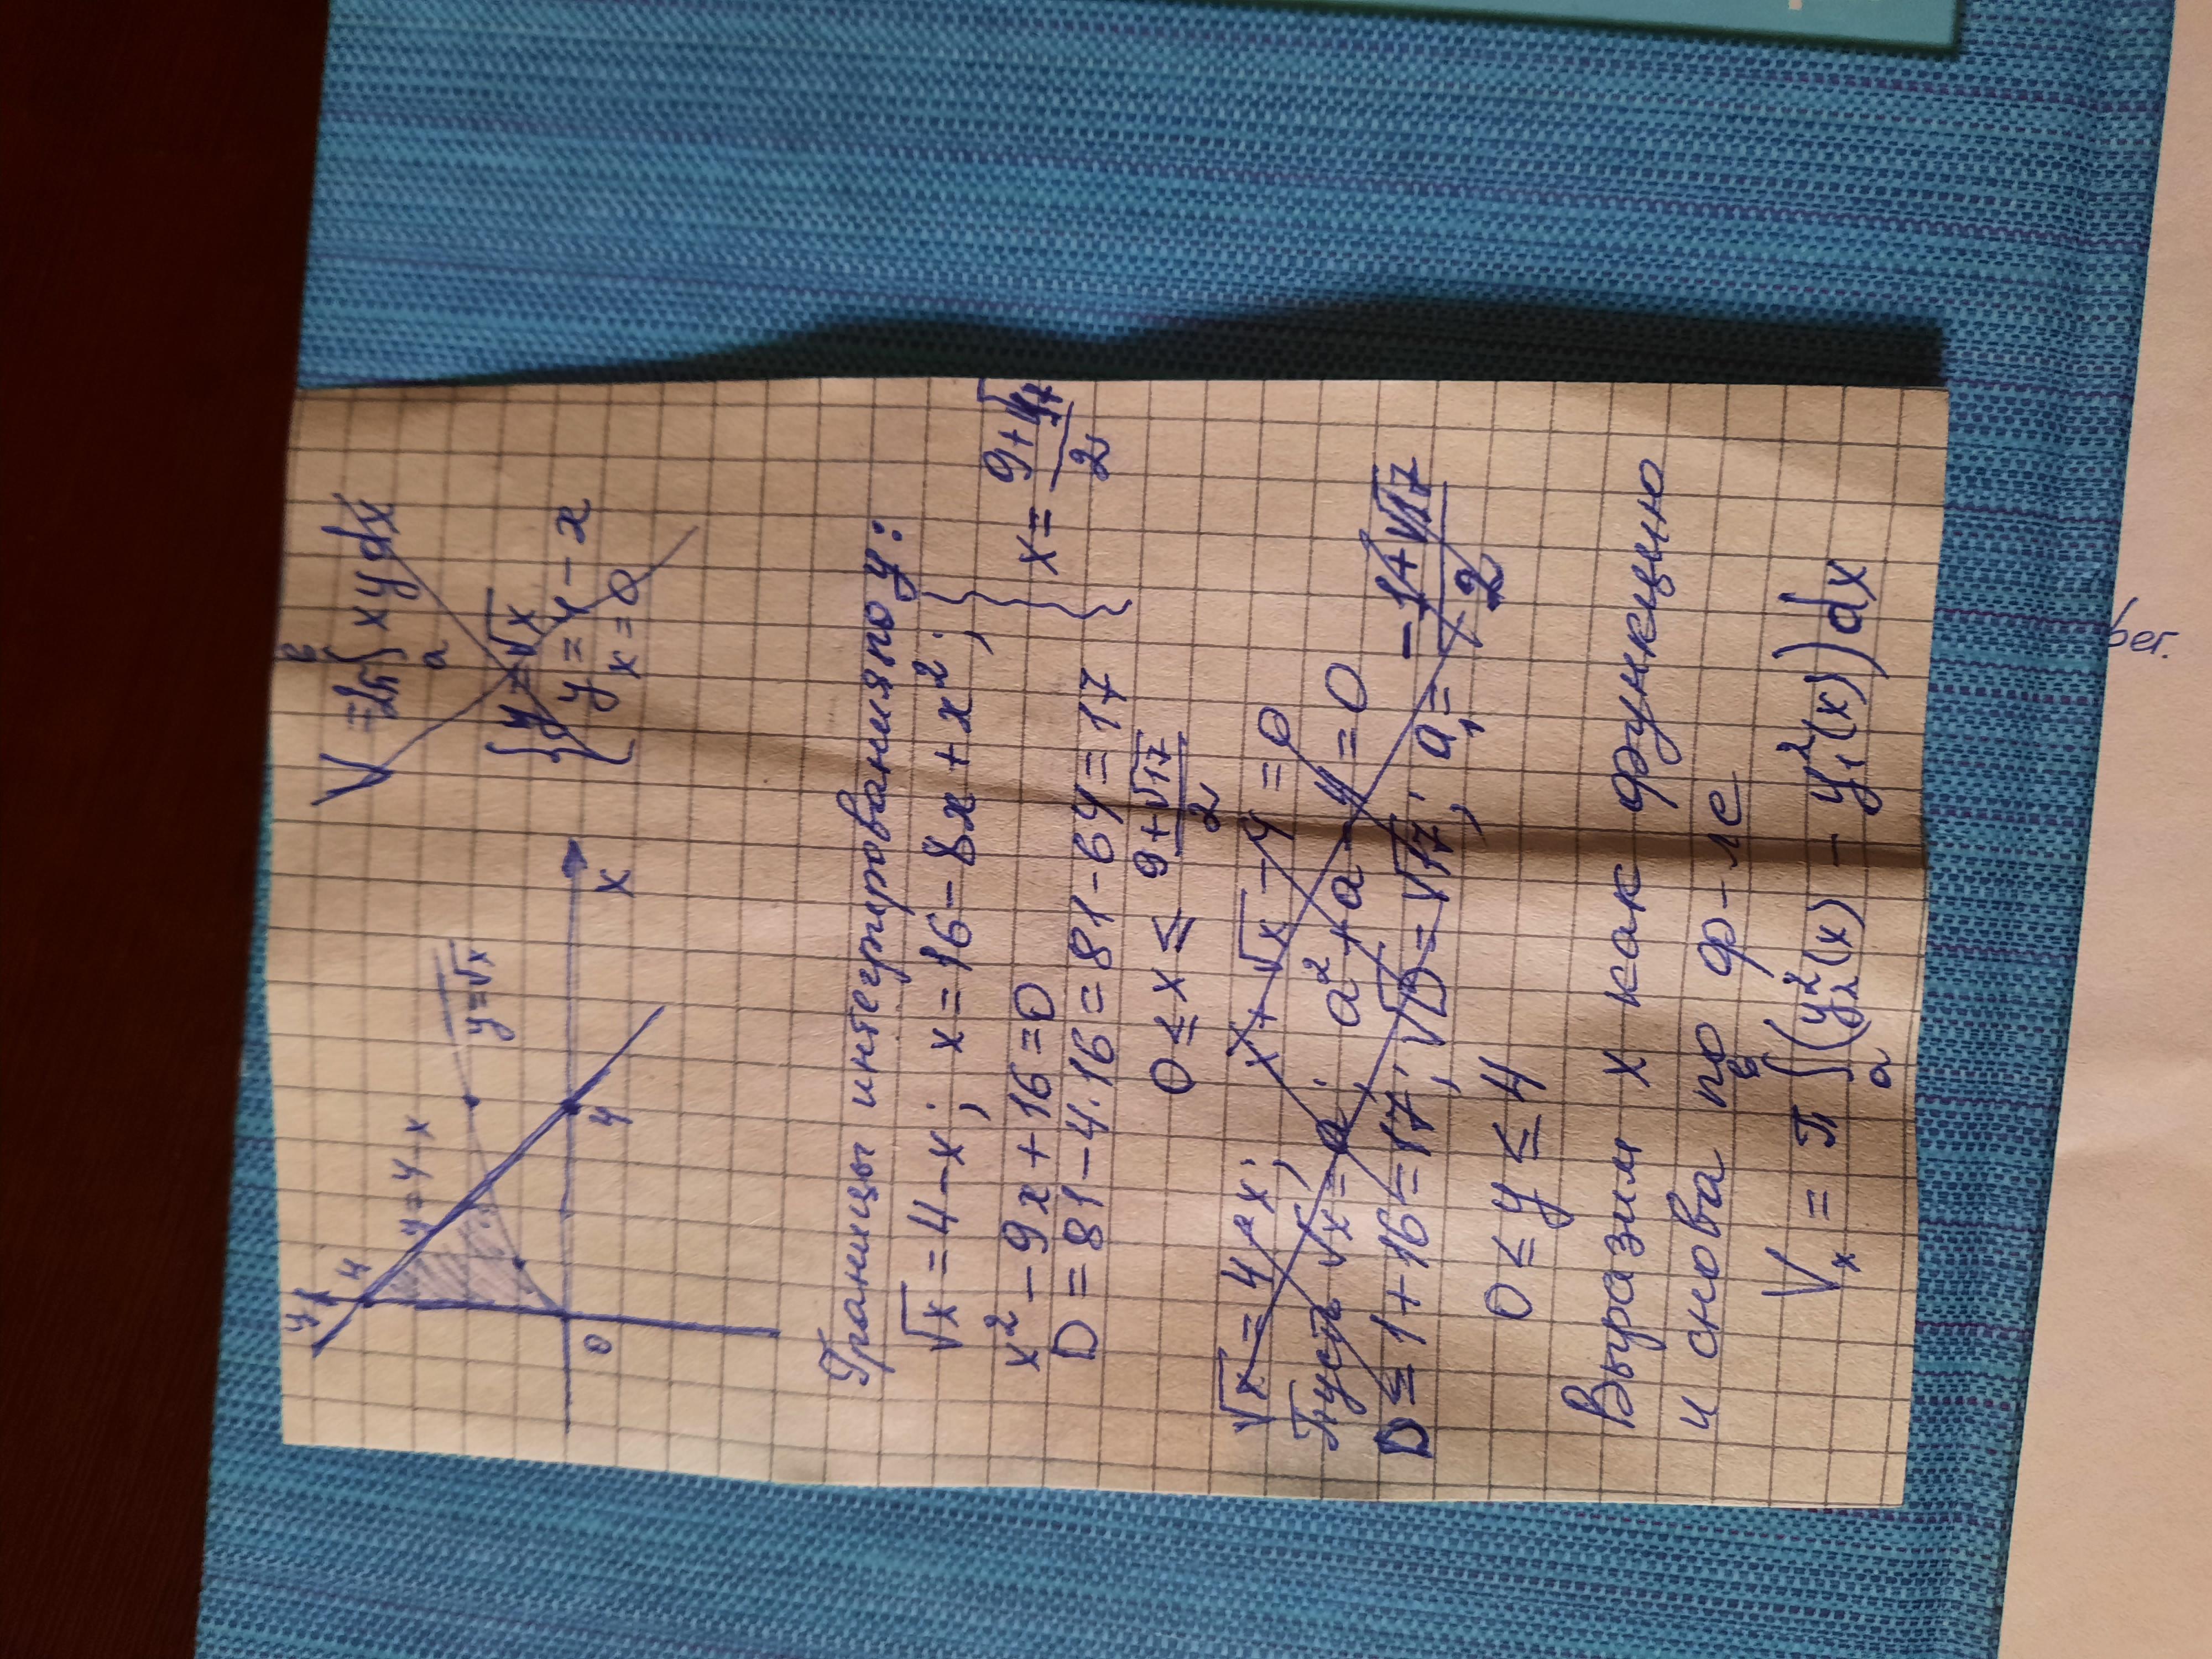 y
4
y=4-x
y=√x
0
4
x
V = 2π ∫ₐᵇ xy dx
{ y=√x
y=4-x
x=0
Границы интегрирования по y:
√x = 4-x; x = 16-8x+x²;
x²-9x+16=0
D = 81-4·16 = 81-64 = 17
x = (9+√17)/2
0 ≤ x ≤ (9+√17)/2
√x = 4-x; x+√x-4=0
Пусть √x=a; a²+a-4=0
D = 1+16=17; √D=√17; a₁ = (-1+√17)/2
0 ≤ y ≤ 4
Выразим x как функцию
и снова по ф-ле
Vₓ = π ∫ₐᵇ (y₂²(x) - y₁²(x))dx
рег.